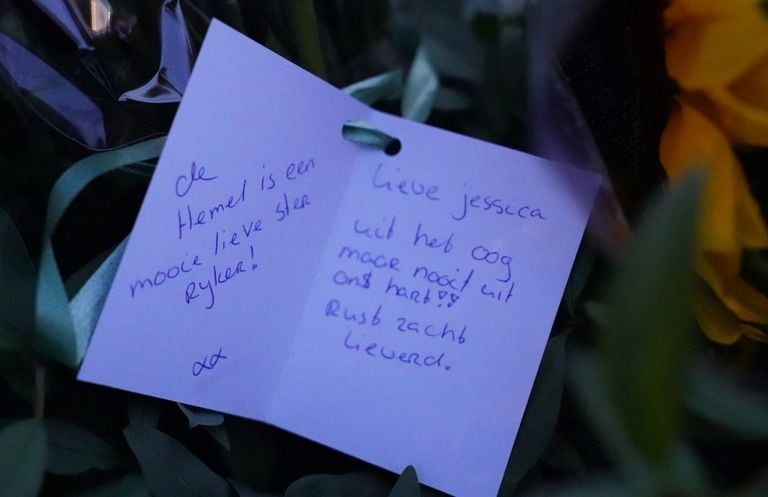 de
Hemel is een
mooie lieve ster
ryker!
xx
Lieve jessica
uit het oog
maar nooit uit
ons hart!!
Rust zacht
lieverd.